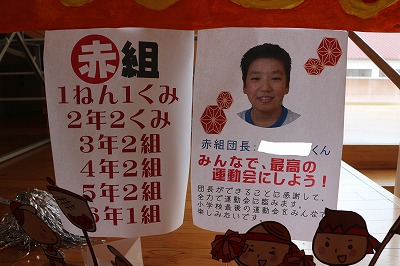 赤組
1ねん1くみ
2年2くみ
3年2組
4年2組
5年2組
6年1組
赤組団長: くん
みんなで、最高の
運動会にしよう!
団長ができることに感謝して、
全力で運動会に臨みます。
小学校最後の運動会をみんなで
楽しみたいです。